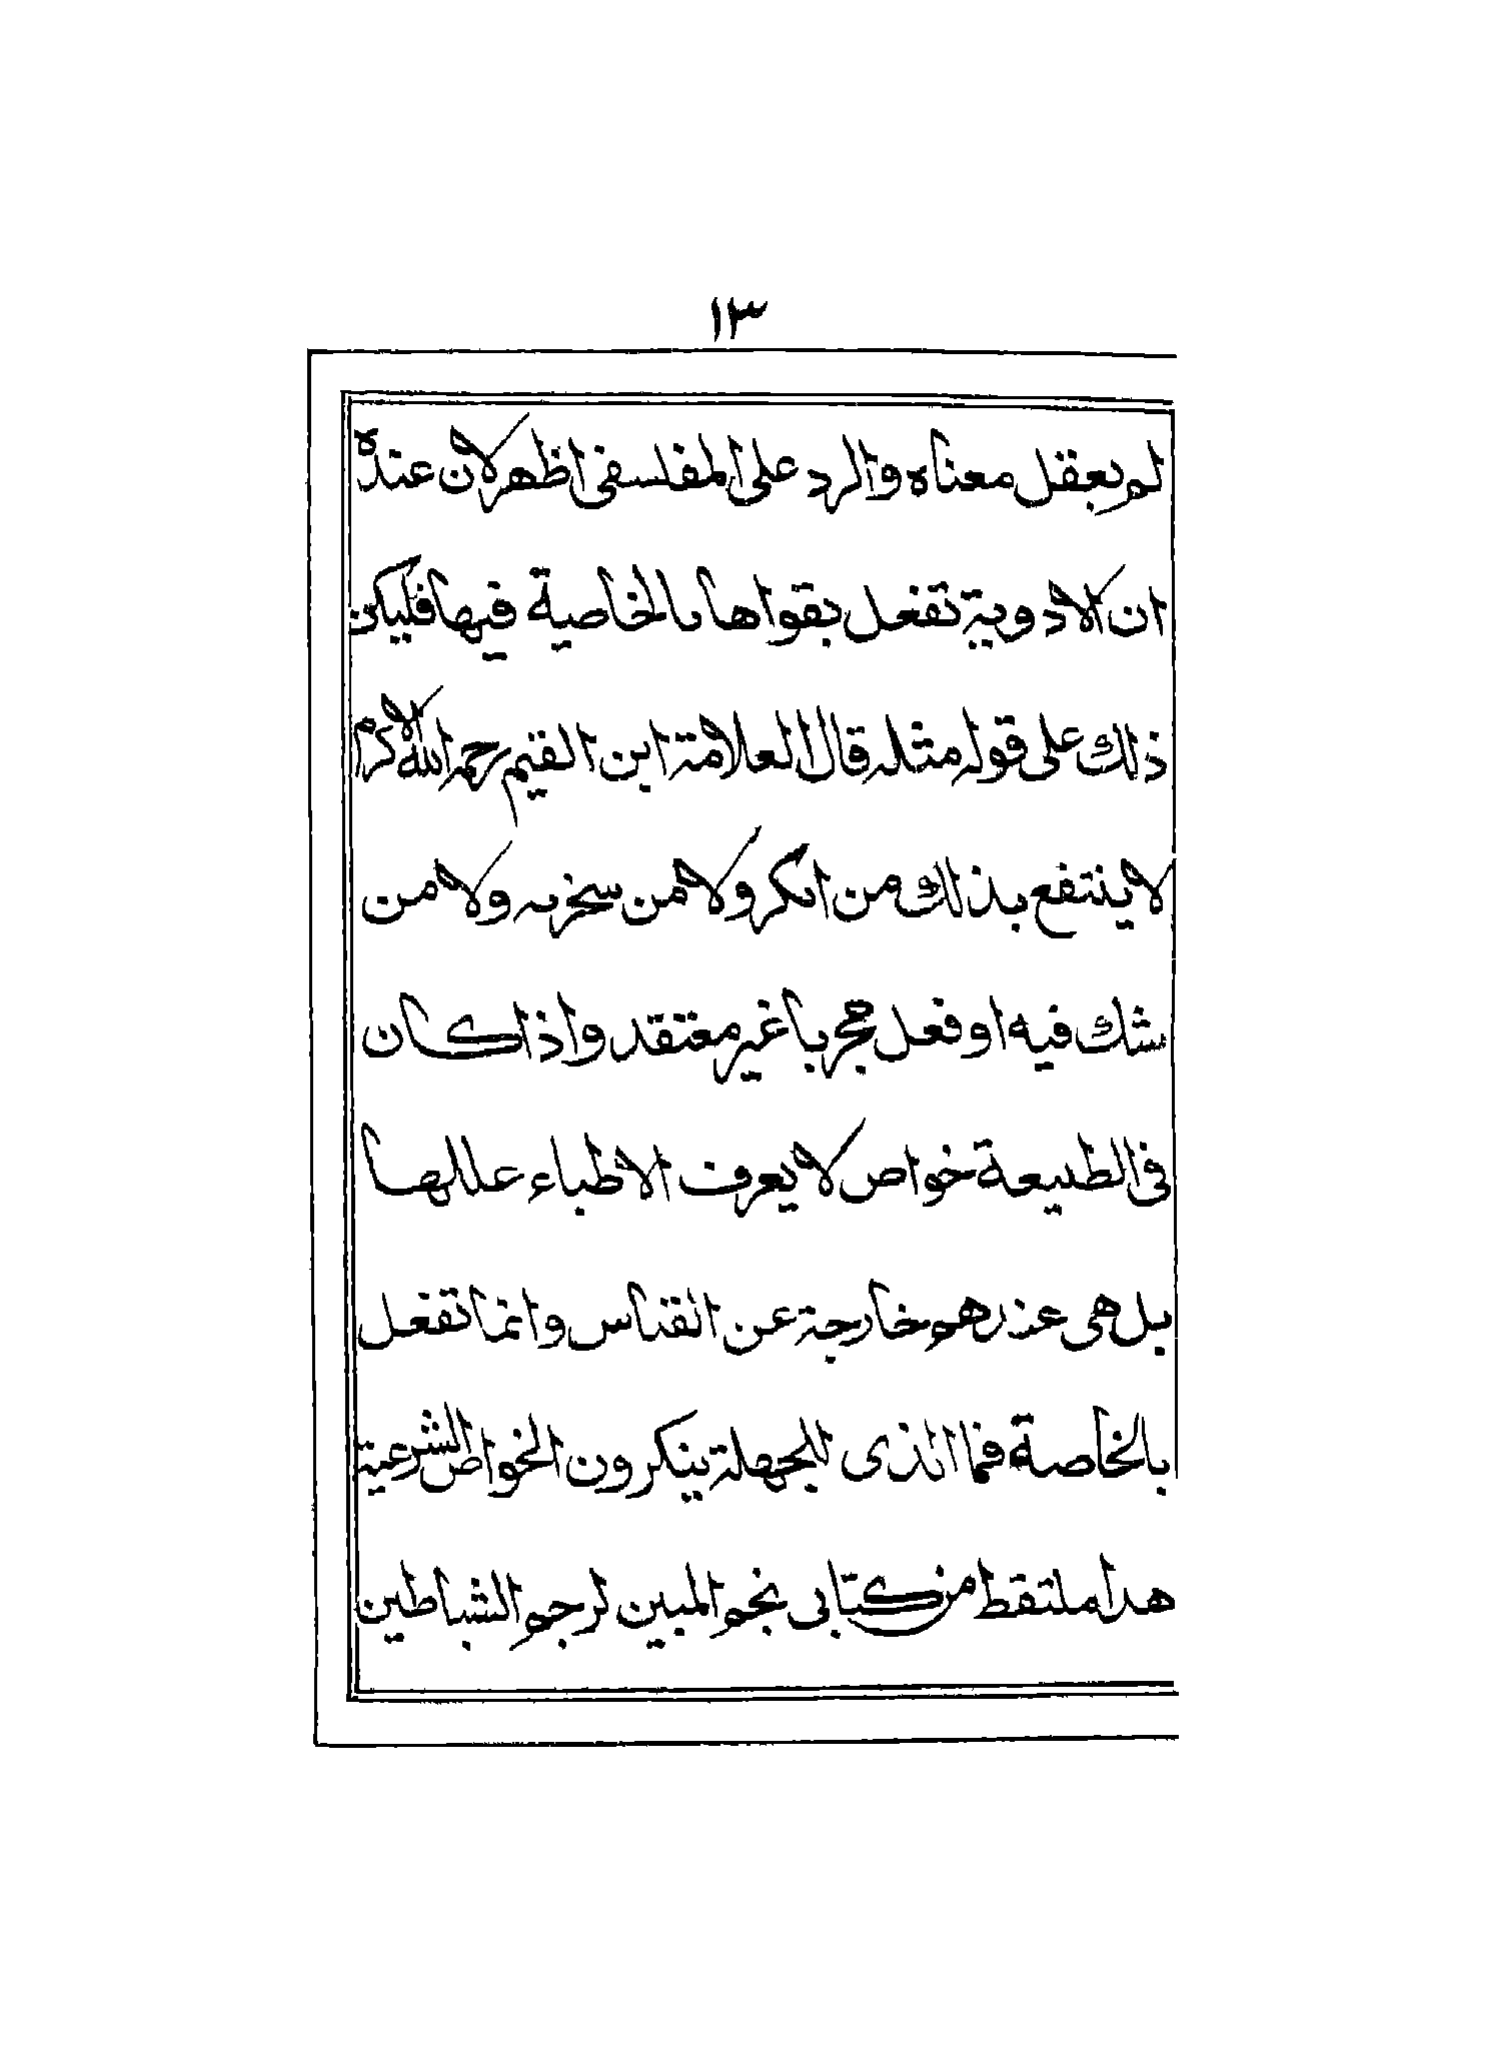 ١٣
لم يعقل معناه والرد على المفلسفى اظهر لان عنده
ان الادوية تفعل بقواها بالخاصية فيها فليكن
ذلك على قوله مثله قال العلامة ابن القيم رحمه الله
لا ينتفع بذلك من انكر ولا من سخر به ولا من
شك فيه او فعل مجربا غير معتقد واذا كان
فى الطبيعة خواص لا يعرف الاطباء عللها
بل هى عندهم خارجة عن القياس وانما تفعل
بالخاصة فما الذى للجهلة ينكرون الخواص الشرعية
هذا ملتقط من كتابى نجو المبين لرجو الشياطين